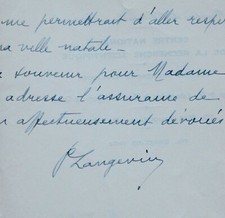 me permettrait d'aller respi
sa ville natale -
souvenir pour Madame
adresse l'assurance de
affectueusement dévoués
P Langevin